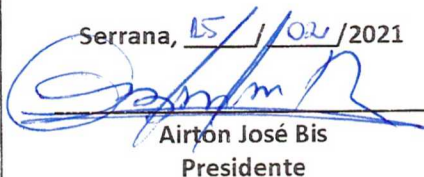 Serrana, 15/02/2021
Airton José Bis
Presidente